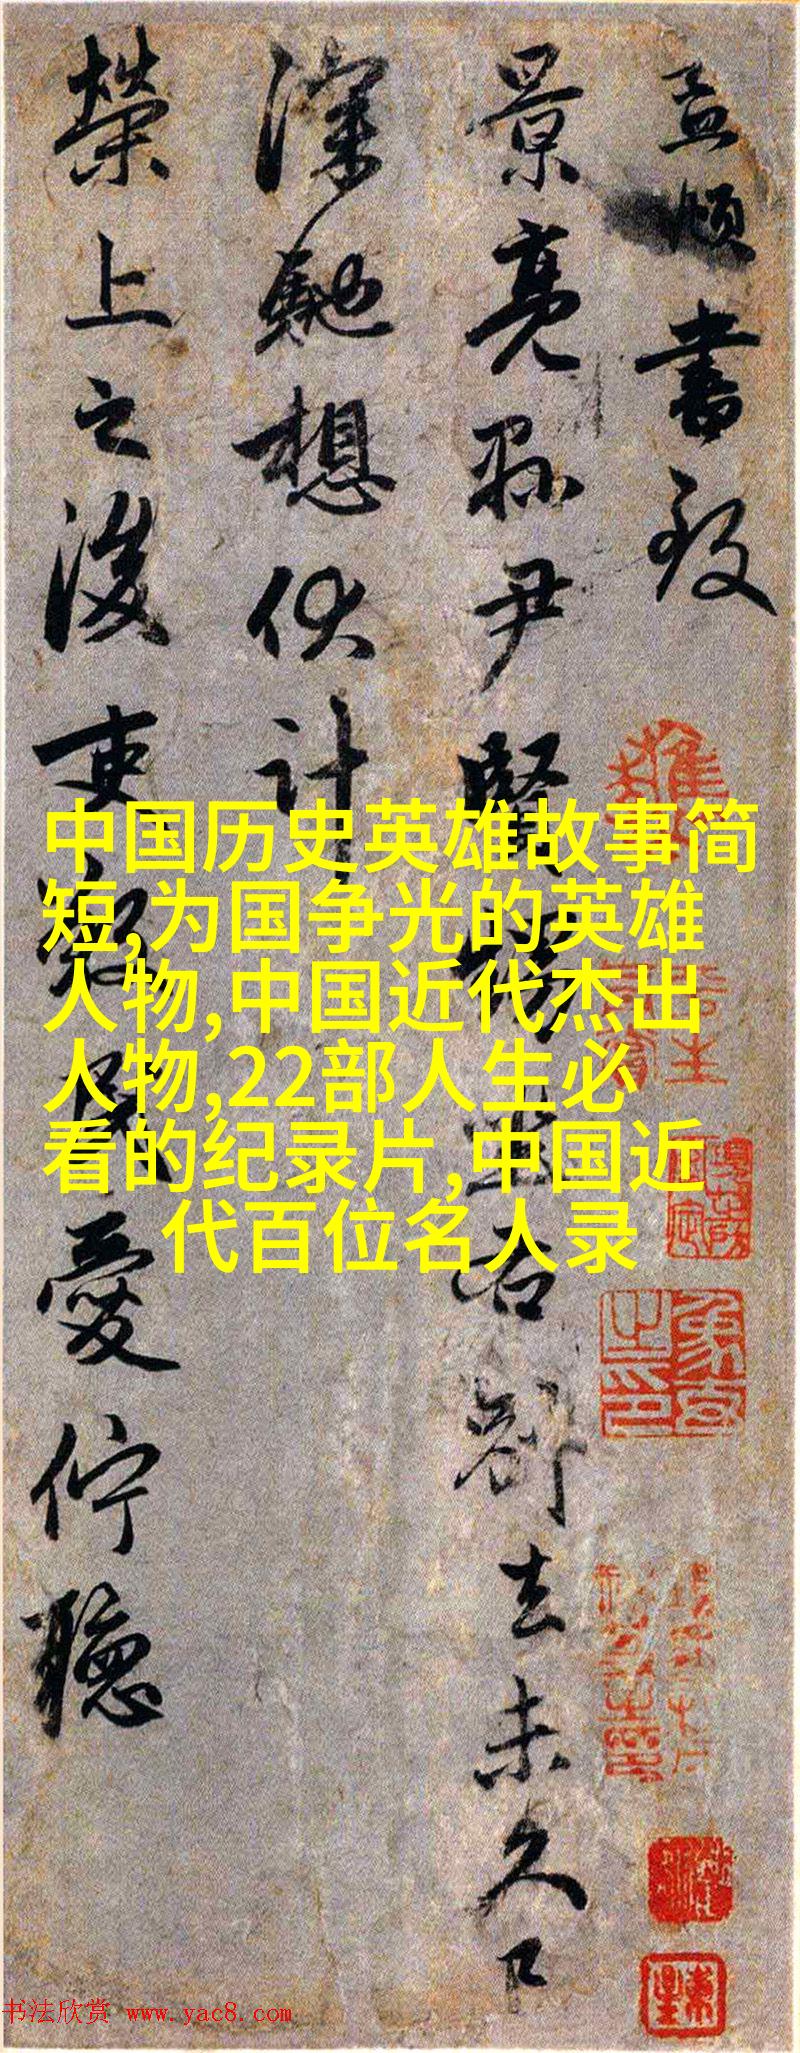 孟頫書致
景亮縣尹賢契 坐右 別去未久 卩
深馳想伏計
榮上之後吏　民愛佇聽
中国历史英雄故事简
短,为国争光的英雄
人物,中国近代杰出
人物,22部人生必
看的纪录片,中国近
代百位名人录
书法欣赏 www.yac8.com